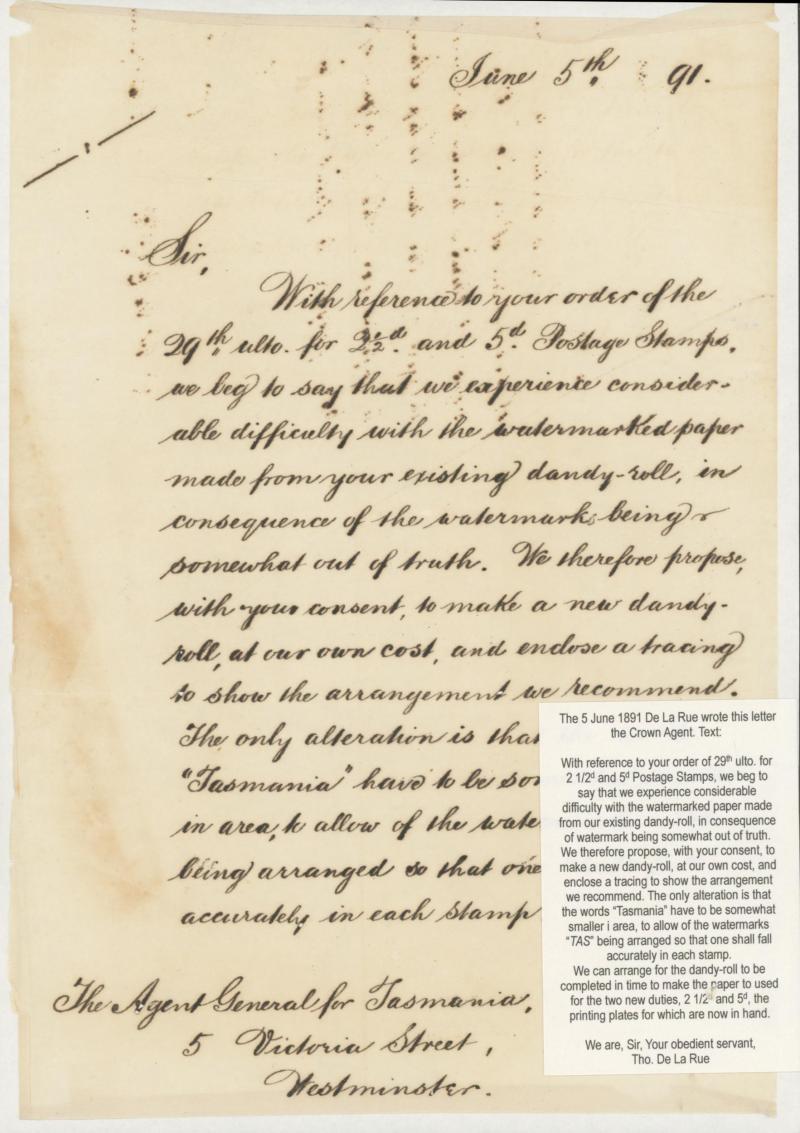 June 5th. 91.
Sir,
With reference to your order of the
29th. ulto. for 2½d. and 5d. Postage Stamps,
we beg to say that we experience consider-
able difficulty with the watermarked paper
made from your existing dandy-roll, in
consequence of the watermarks being
somewhat out of truth. We therefore propose,
with your consent, to make a new dandy-
roll, at our own cost, and enclose a tracing
to show the arrangement we recommend.
The only alteration is that
"Tasmania" have to be
in area, to allow of the
being arranged so that one
accurately in each stamp
The Agent General for Tasmania,
5 Victoria Street,
Westminster.
The 5 June 1891 De La Rue wrote this letter
the Crown Agent. Text:
With reference to your order of 29th ulto. for
2 1/2d and 5d Postage Stamps, we beg to
say that we experience considerable
difficulty with the watermarked paper made
from our existing dandy-roll, in consequence
of watermark being somewhat out of truth.
We therefore propose, with your consent, to
make a new dandy-roll, at our own cost, and
enclose a tracing to show the arrangement
we recommend. The only alteration is that
the words "Tasmania" have to be somewhat
smaller i area, to allow of the watermarks
"TAS" being arranged so that one shall fall
accurately in each stamp.
We can arrange for the dandy-roll to be
completed in time to make the paper to used
for the two new duties, 2 1/2d and 5d, the
printing plates for which are now in hand.
We are, Sir, Your obedient servant,
Tho. De La Rue